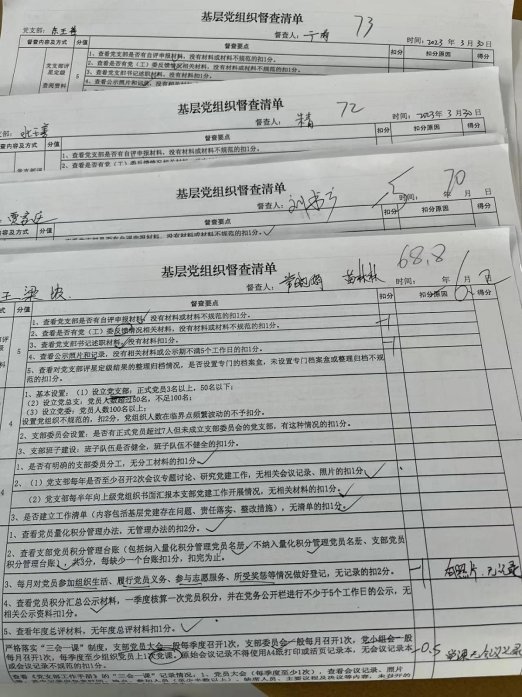 基层党组织督查清单 73
党支部： 督查人： 时间：2023 年 3 月 30 日
督查内容及方式 分值 督查要点 扣分 扣分原因 得分
党支部评星定级 查阅资料 5
1、查看党支部是否有自评申报材料，没有材料或材料不规范的扣1分。
2、查看是否有党（工）委反馈情况相关材料，没有材料或材料不规范的扣1分。
3、查看党支部书记述职材料，没有材料扣1分。
基层党组织督查清单 72
督查人： 时间：2023 年 3 月 30 日
督查内容及方式 分值 督查要点 扣分 扣分原因 得分
1、查看党支部是否有自评申报材料，没有材料或材料不规范的扣1分。
基层党组织督查清单 70
督查人： 时间： 年 月 日
内容及方式 分值 督查要点 扣分 扣分原因 得分
1、查看党支部是否有自评申报材料，没有材料或材料不规范的扣1分。
基层党组织督查清单 68.8
督查人： 时间： 年 月 日
式 分值 督查要点 扣分 扣分原因 得分
5
1、查看党支部是否有自评申报材料，没有材料或材料不规范的扣1分。
2、查看是否有党（工）委反馈情况相关材料，没有材料或材料不规范的扣1分。 -1
3、查看党支部书记述职材料，没有材料扣1分。
4、查看公示照片和记录，没有相关材料或公示期不满5个工作日的扣1分。 -1
5、查看对党支部评星定级结果的整理归档情况，是否设置专门的档案盒，未设置专门档案盒或整理归档不规
范的扣1分。
4
1、基本设置：（1）设立党支部：正式党员3名以上，50名以下；
（2）设立党总支：党员人数超过50名，不足100名；
（3）设立党委：党员人数100名以上；
设置党组织不规范的，扣2分，党组织人数在临界点频繁波动的不予扣分。
2、支部委员会设置：是否有正式党员超过7人但未成立支部委员会的党支部，有这种情况的扣1分。
3、支部班子建设：班子队伍是否健全，班子队伍不健全的扣1分。
4
1、是否有明确的支部委员分工，无分工材料的扣1分。
2、（1）党支部每年是否至少召开2次会议专题讨论、研究党建工作，无相关会议记录、照片的扣1分。
（2）党支部每半年向上级党组织书面汇报本支部党建工作开展情况，无相关材料的扣1分。
3、是否建立工作清单（内容包括基层党建存在问题、责任落实、整改措施），无清单的扣1分。
1、查看党员量化积分管理办法，无管理办法的扣2分。
2、查看支部党员积分管理台账（包括纳入量化积分管理党员名册、不纳入量化积分管理党员名册、支部党员
积分管理台账），共3分，每缺少一个台账扣1分，扣完为止。
3、每月对党员参加组织生活、履行党员义务、参与志愿服务、所受奖惩等情况做好登记，无记录的扣2分。 -1 有照片，无记录
4、查看党员积分汇总公示材料，一季度核算一次党员积分，并在党务公开栏进行不少于5个工作日的公示，无
相关公示资料扣1分。
5、查看年度总评材料，无年度总评材料扣1分。
严格落实“三会一课”制度，支部党员大会一般每季度召开1次，支部委员会一般每月召开1次，党小组会一般
每月召开1次，每季度至少组织党员上1次党课。原始会议记录不得使用A4纸打印或活页记录本，无会议记录本
或会议记录不规范的扣1分。 -0.5 党课无会议记录